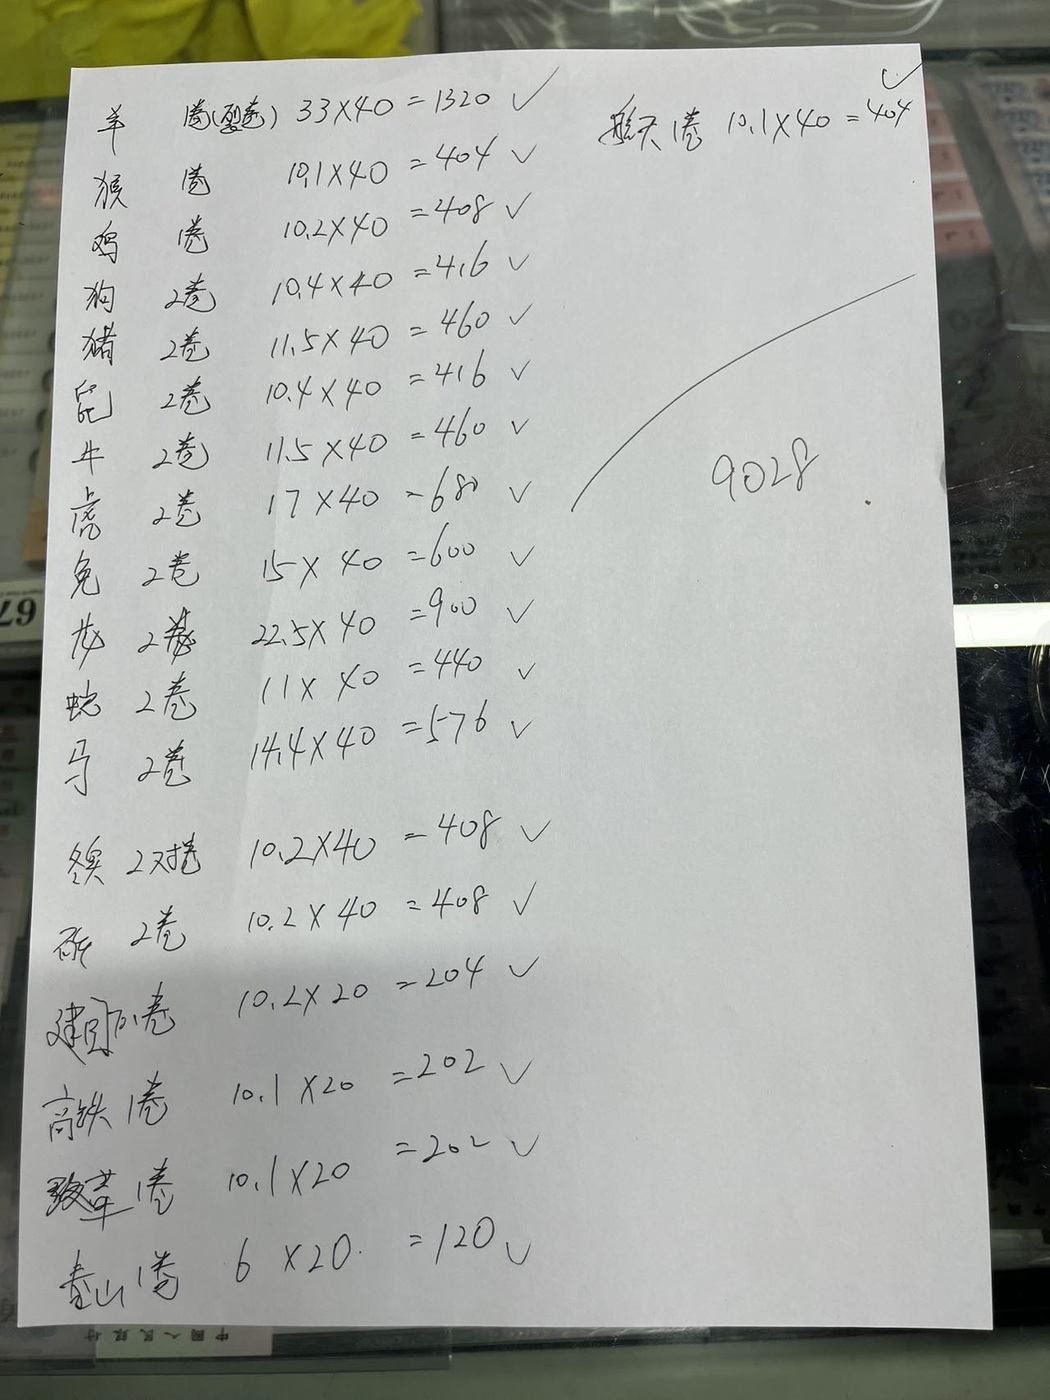 羊 1卷(配卷) 33×40=1320 ✓
猴 1卷 10.1×40=404 ✓
鸡 1卷 10.2×40=408 ✓
狗 2卷 10.4×40=416 ✓
猪 2卷 11.5×40=460 ✓
鼠 2卷 10.4×40=416 ✓
牛 2卷 11.5×40=460 ✓
虎 2卷 17×40=680 ✓
兔 2卷 15×40=600 ✓
龙 2卷 22.5×40=900 ✓
蛇 2卷 11×40=440 ✓
马 2卷 14.4×40=576 ✓
冬奥 2对卷 10.2×40=408 ✓
2卷 10.2×40=408 ✓
建国 1卷 10.2×20=204 ✓
高铁 1卷 10.1×20=202 ✓
改革 1卷 10.1×20=202 ✓
泰山 1卷 6×20=120 ✓
航天 1卷 10.1×40=404 ✓
9028
中国人民银行